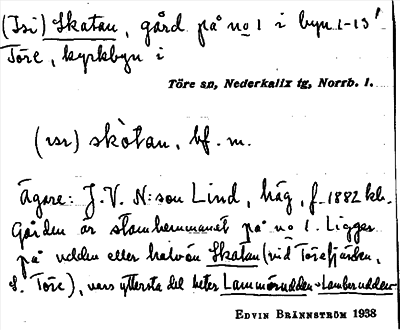 (Isi) Skatan, gård på no 1 i byn 1-13
Töre, kyrkbyn i
Töre sn, Nederkalix tg, Norrb. l.
skòtan, bf. m.
Ägare: J. V. N:son Lind, häg, f. 1882 kh.
Gården är stamhemmanet på no 1. Ligger
på udden eller halvön Skatan (vid Törefjärden,
S. Töre), vars yttersta del heter Lammörudden - Lamberudden
EDVIN BRÄNNSTRÖM 1938